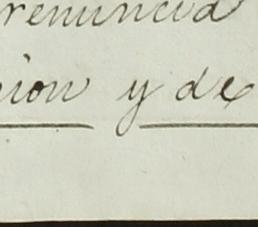 renuncia
cion y de